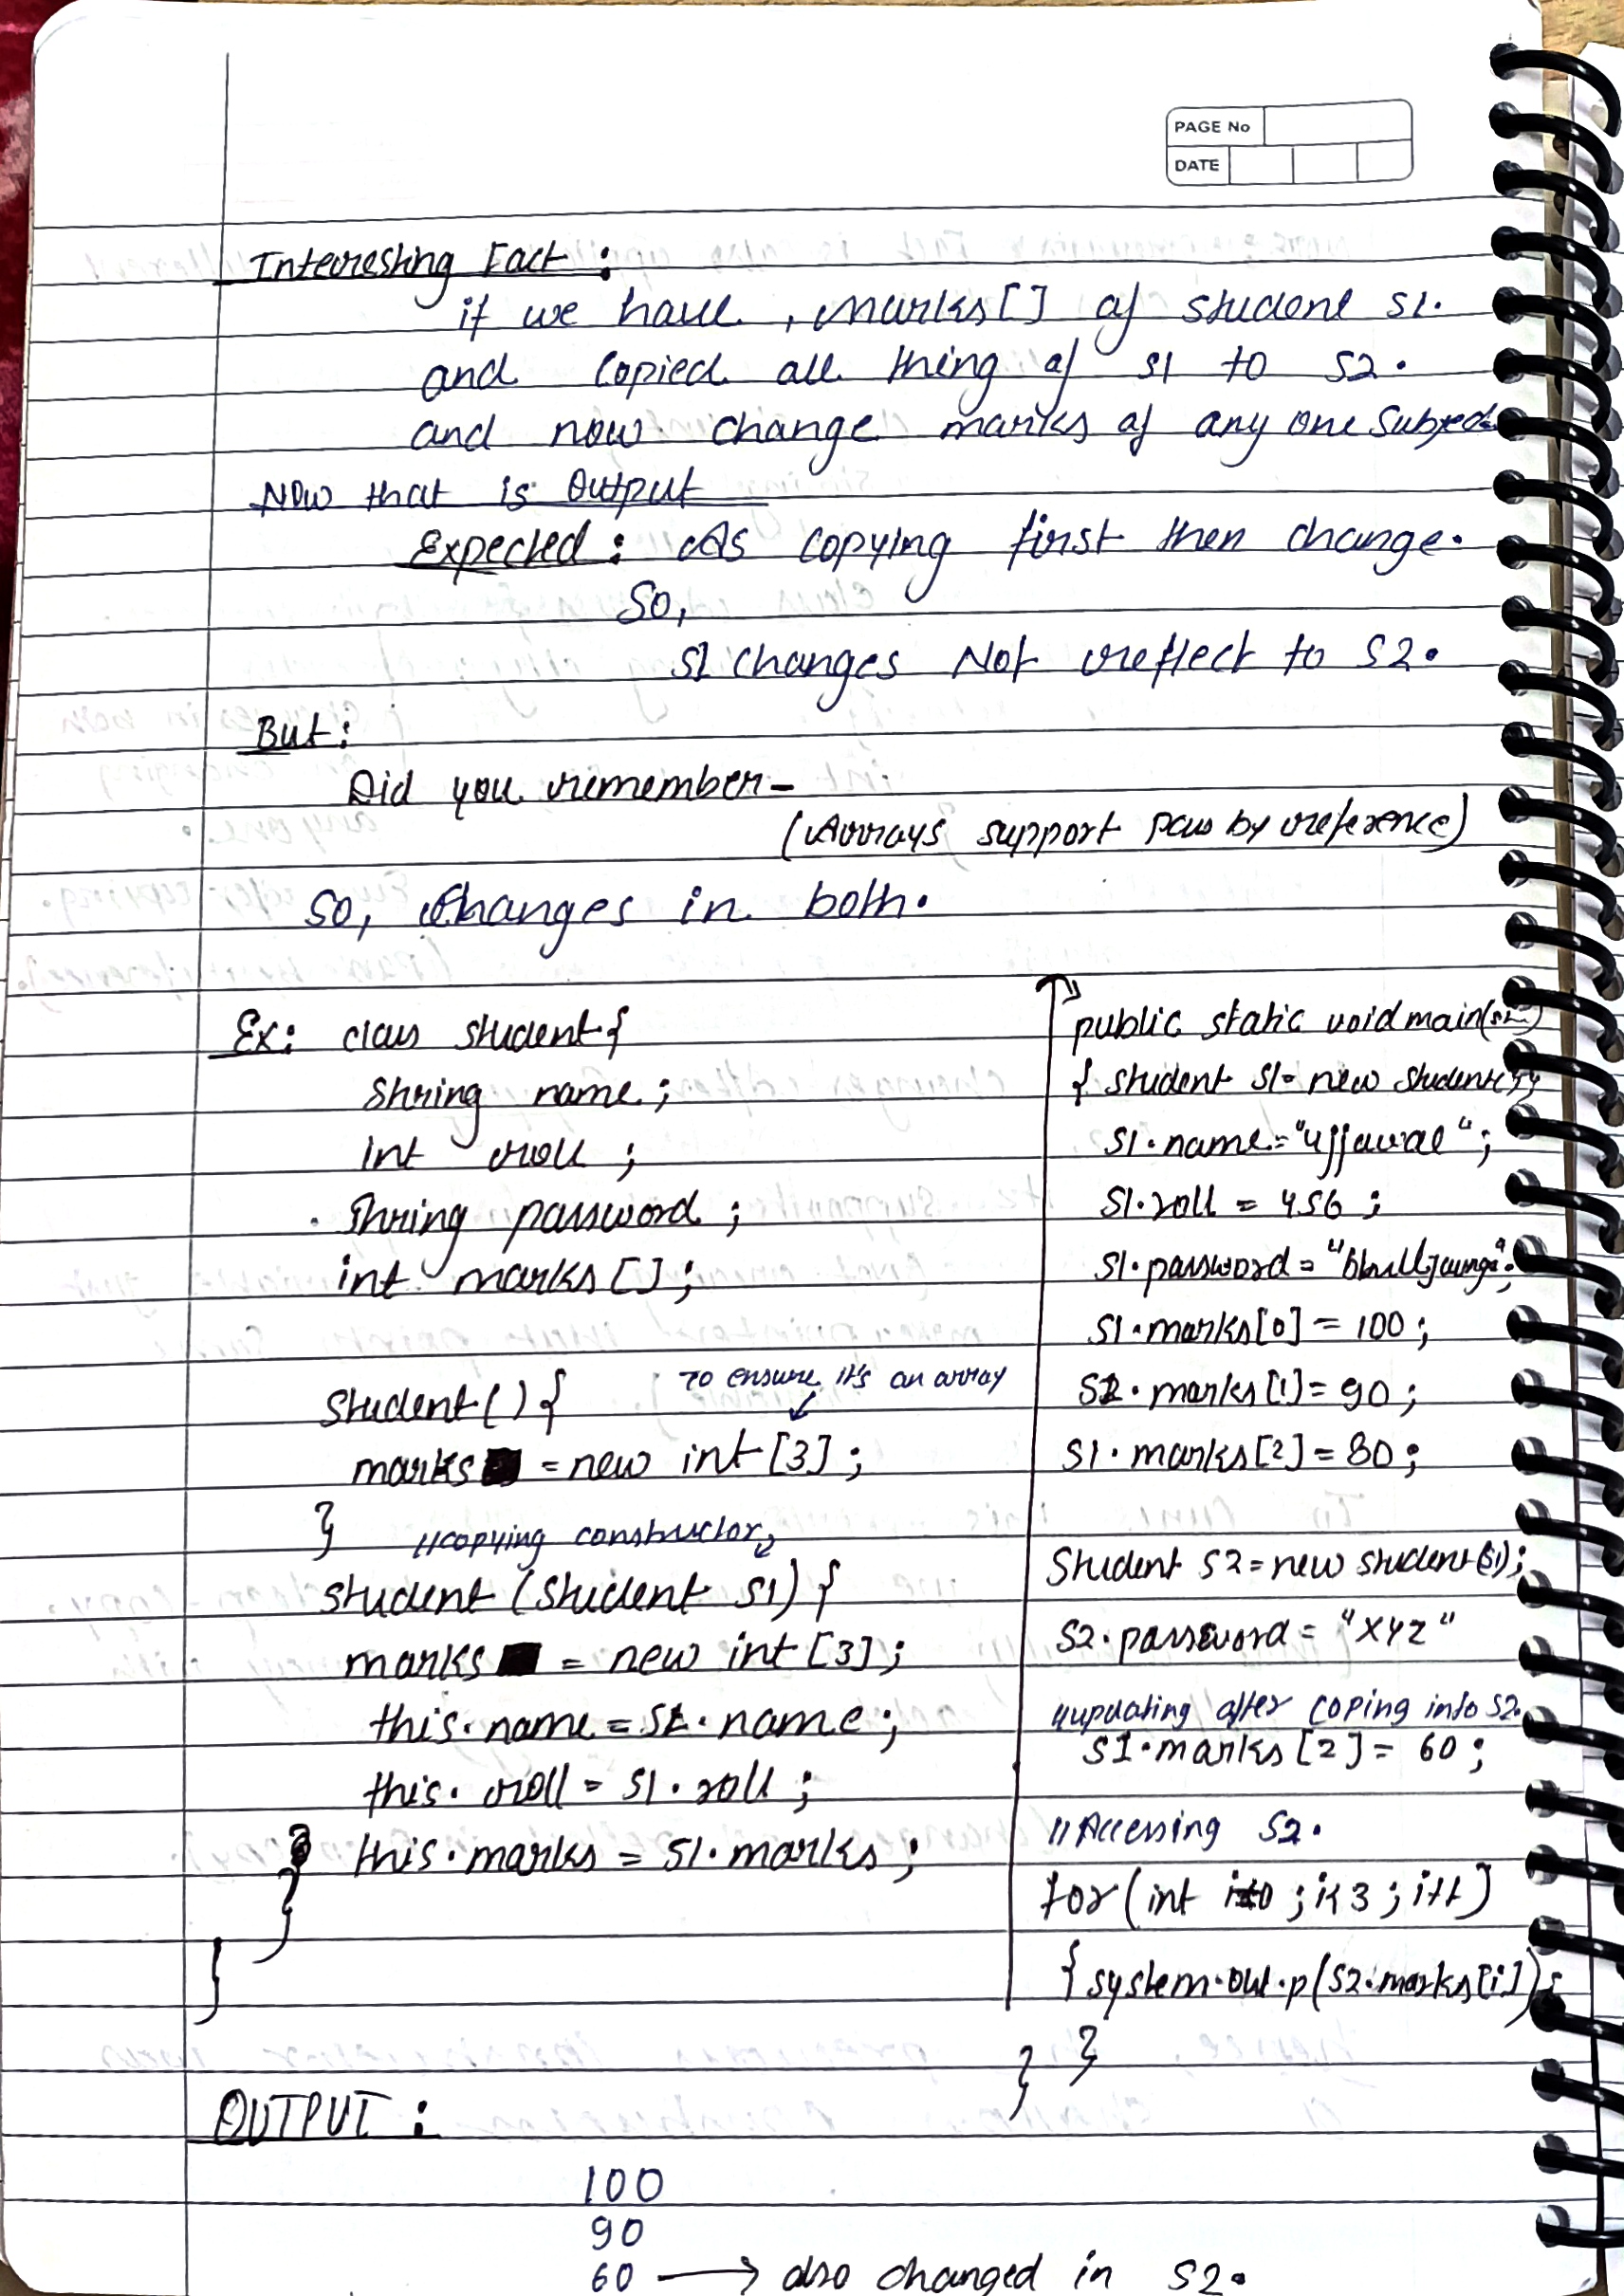 PAGE No
DATE
Interesting Fact :
if we have , marks[] of student S1.
and copied all thing of S1 to S2.
and now change marks of any one Subject
Now that is Output
Expected : As copying first then change.
So,
S1 changes Not reflect to S2.
But:
Did you remember-
(Arrays support pass by reference)
So, changes in both.
Ex: class student{
String name;
int roll ;
String password ;
int marks[];
student(){
To ensure it's an array
marks = new int [3] ;
}
//copying constructor
student (student S1) {
marks = new int [3];
this.name = S1.name;
this.roll = S1.roll ;
this.marks = S1.marks ;
}
}
public static void main(
{ student S1 = new student();
S1.name = "ujjawal";
S1.roll = 456 ;
S1.password =
S1.marks[0] = 100;
S1.marks[1] = 90 ;
S1.marks[2] = 80 ;
Student S2 = new student(S1);
S2.password = "xyz"
//updating after coping into S2.
S1.marks[2] = 60 ;
//Accessing S2.
for(int i=0 ; i<3 ; i++)
{ system.out.p(S2.marks[i]);
}
}
OUTPUT :
100
90
60 → also changed in S2.